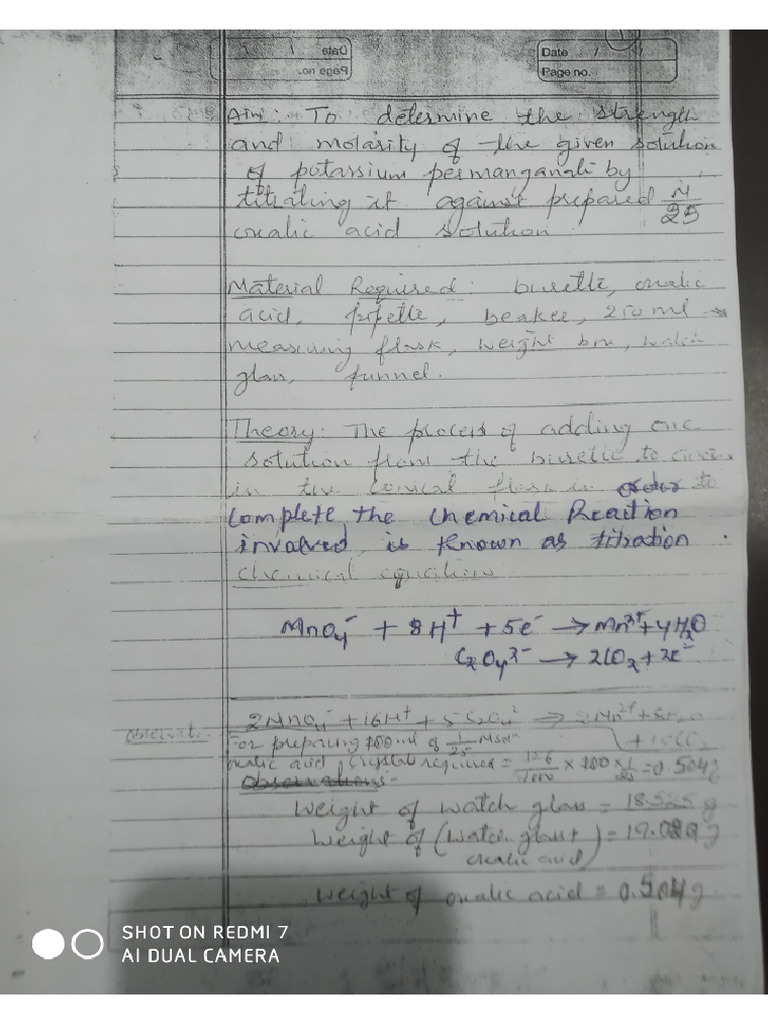 Date / /
Page no.
Date / /
Page no.
Aim: To determine the strength
and molarity of the given solution
of potassium permanganate by
titrating it against prepared M/25
oxalic acid solution
Material Required: burette, oxalic
acid, pipette, beaker, 250 ml
measuring flask, weight box, watch
glass, funnel.
Theory: The process of adding one
solution from the burette to
in the conical flask in order to
complete the chemical Reaction
involved is known as titration.
Chemical equation
MnO4⁻ + 8H⁺ + 5e⁻ → Mn²⁺ + 4H2O
C2O4²⁻ → 2CO2 + 2e⁻
2MnO4⁻ + 16H⁺ + 5C2O4²⁻ → 2Mn²⁺ + 8H2O
+ 10CO2
For preparing 100 ml of 1/25 M
oxalic acid, Crystals required = 126/1000 × 100 × 1/25 = 0.504g
Observations:-
Weight of watch glass = 18.525 g
Weight of (watch glass + oxalic acid) = g
Weight of oxalic acid = 0.504 g
SHOT ON REDMI 7
AI DUAL CAMERA